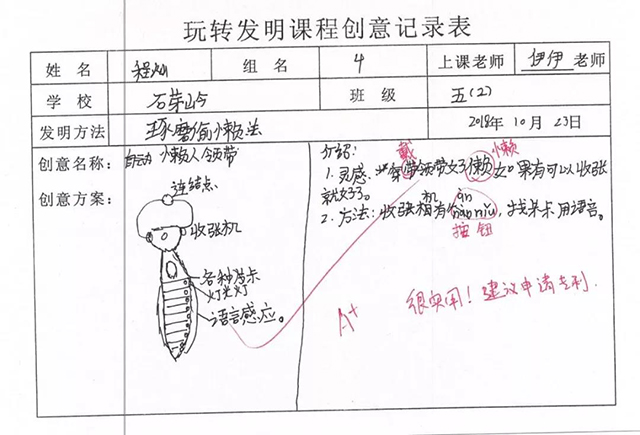 玩转发明课程创意记录表
姓 名 程灿 组 名 4 上课老师 伊伊 老师
学 校 石芽岭 班 级 五(2)
发明方法 琢磨偷懒法 2018年 10月 23日
创意名称: 自动 懒人领带
创意方案:
连结点
收张机
各种房卡
灯光灯
语言感应。
介绍:
戴 懒
1. 灵感:
带领带好了懒
女 如果有可以收张
就好了。
机 àn
2. 方法: 收张相有你nǎo niǔ, 找某卡用语音。
按钮
A+
很实用! 建议申请专利.